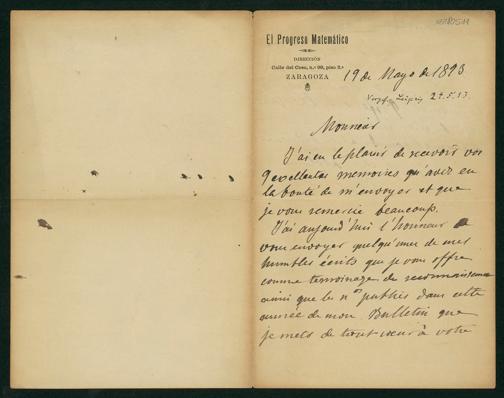 El Progreso Matemático
DIRECCIÓN
Calle del Coso, n.º 99, piso 2.º
ZARAGOZA
19 de Mayo de 1893
Leipzig 24.5.93
Monsieur
J'ai eu le plaisir de recevoir vos
9 excellentes memoires qu'avez eu
la bonté de m'envoyer et que
je vous remercie beaucoup.
J'ai aujourd'hui l'honneur de
vous envoyer quelqu'unes de mes
humbles écrits que je vous offre
comme temoinage de reconnaissance
ainsi que les nos publiés dans cette
année de mon Bulletin que
je mets de tout coeur à votre